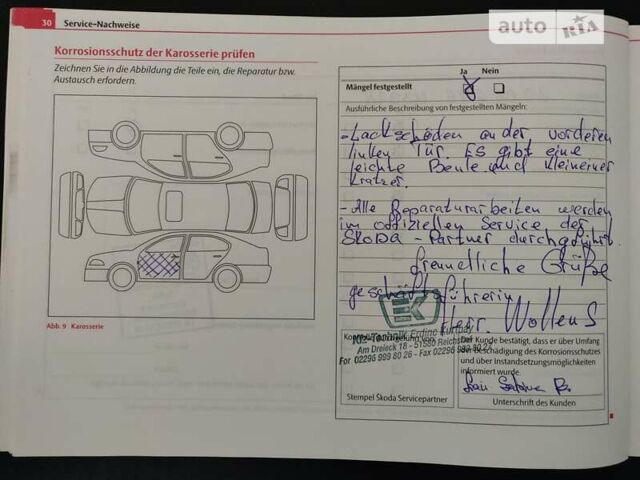 auto RIA
30 Service-Nachweise
Korrosionsschutz der Karosserie prüfen
Zeichnen Sie in die Abbildung die Teile ein, die Reparatur bzw.
Austausch erfordern.
Abb. 9 Karosserie
Ja Nein
Mängel festgestellt
Ausführliche Beschreibung von festgestellten Mängeln:
- Lackschäden an der vorderen
linken Tür. Es gibt eine
leichte Beule und kleinerner
Kratzer.
- Alle Reparaturarbeiten werden
im offiziellen Service der
Skoda - Partner durchgeführt.
freundliche Grüße
geschäftsführerin
Herr. Wollens
EK
Kfz-Technik Erdinc
Am Dreieck 18 - 51580 Reichshof
Fon 02296 999 80 26 - Fax 02296
Der Kunde bestätigt, dass er über Umfang
der Beschädigung des Korrosionsschutzes
und über Instandsetzungsmöglichkeiten
informiert wurde.
Stempel Škoda Servicepartner
Unterschrift des Kunden